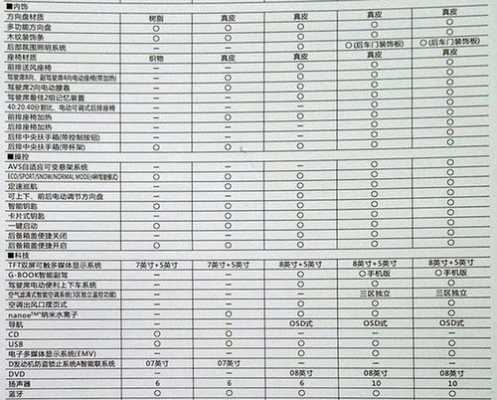 ■内饰
方向盘材质 树脂 真皮 真皮 真皮 真皮
多功能方向盘 ○ ○ ○ ○ ○
木纹装饰条 ○ ○ ○ ○ ○
后部氛围照明系统 — — ○ ○(后车门装饰板) ○(后车门装饰板)
座椅材质 织物 真皮 真皮 真皮 真皮
前排送风座椅
驾驶席8向、副驾驶席4向电动座椅(带加热)
驾驶席2向电动腰靠
驾驶席最佳2组记忆装置
40:20:40分割比、电动可调式后排座椅
前排座椅加热
后排座椅加热
后排中央扶手箱(带控制按钮)
后排中央扶手箱(带杯架)
■操控
AVS自适应可变悬架系统
ECO/SPORT/SNOW/NORMAL MODE(4种驾驶模式)
定速巡航
可上下、前后电动调节方向盘
智能钥匙
卡片式钥匙
一键启动
后备箱盖便捷关闭
后备箱盖便捷开启
■科技
TFT双屏可触多媒体显示系统 7英寸+5英寸 7英寸+5英寸 8英寸+5英寸 8英寸+5英寸 8英寸+5英寸
G-BOOK智能副驾 — — ○ ○手机版 ○手机版
驾驶席电动便利上下车系统
空气过滤式智能空调系统(3区独立温控功能) 三区独立 三区独立
空调出风口摆页式
nanoe™纳米水离子
导航 — — OSD式 OSD式 OSD式
CD
USB
电子多媒体显示系统(EMV)
D发动机防盗锁止系统A智能联系统 07英寸 07英寸 — — —
DVD — — 08英寸 08英寸 08英寸
扬声器 6 6 6 10 10
蓝牙 ○ ○ ○ ○ ○